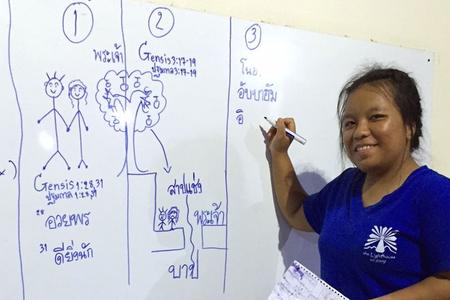 1
Gensis 1:28,31
ปฐมกาล 1:28,31
28 อวยพร
31 ดียิ่งนัก
2
พระเจ้า
Gensis 3:17-19
ปฐมกาล 3:17-19
สาปแช่ง
พระเจ้า
บาป
3
อิ
the Lighthouse